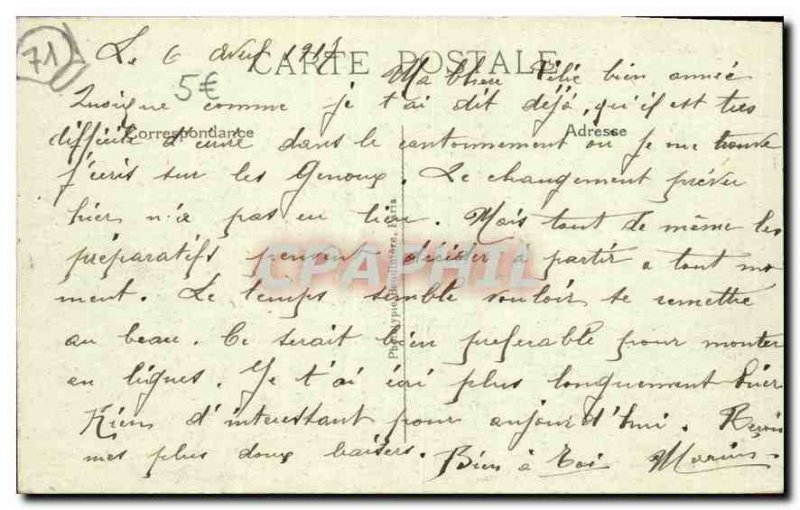 71
Le 6 Avril 1917
CARTE POSTALE
5€
Ma chère Félie bien aimée
Quoique comme je t'ai dit déjà, qu'il est très
Correspondance
Adresse
difficile d'ecrire dans le cantonnement où je me trouve
j'ecris sur les Genoux. Le changement prévu
hier n'a pas eu lieu. Mais tout de même les
préparatifs peuvent décider a partir a tout mo
CPAPHIL
ment. Le temps semble vouloir se remettre
au beau. Ce serait bien preferable pour monter
en lignes. Je t'ai écri plus longuement hier
Rien d'interessant pour aujourd'hui. Reçois
mes plus doux baisers. Bien à Toi Marius
Phototypie Baudinière, Paris